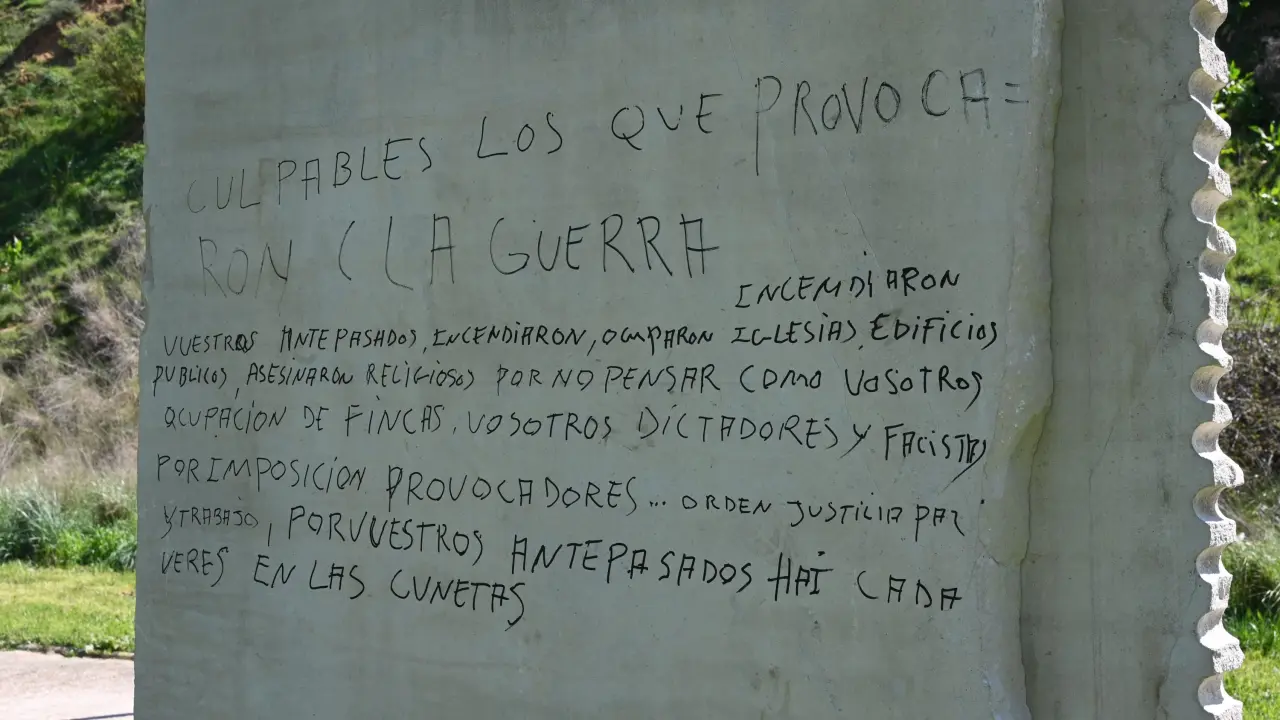 CULPABLES LOS QUE PROVOCA=
RON C LA GUERRA
ENCENDIARON
VUESTROS ANTEPASADOS, ENCENDIARON, OCUPARON IGLESIAS, EDIFICIOS
PUBLICOS, ASESINARON RELIGIOSOS POR NO PENSAR COMO VOSOTROS
OCUPACION DE FINCAS. VOSOTROS DICTADORES Y FACISTAS
POR IMPOSICION PROVOCADORES... ORDEN JUSTICIA PAZ
Y TRABAJO, POR VUESTROS ANTEPASADOS HAI CADA
VERES EN LAS CUNETAS